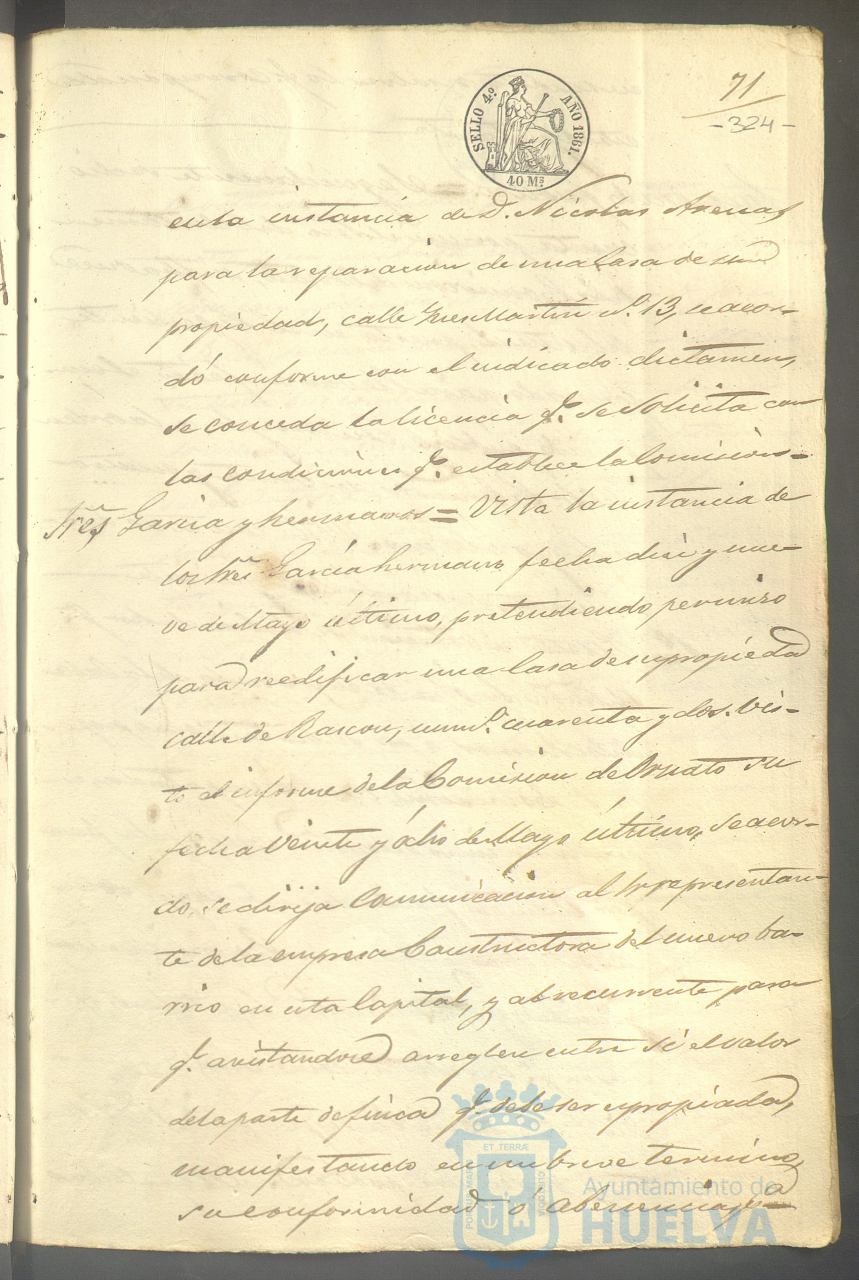 SELLO 4.º AÑO 1861.
40 M.s
71
- 324 -
en la instancia de D. Nicolas Arenas
para la reparacion de una Casa de su
propiedad, calle Gres Martin n.º 13, se acor-
dó conforme con el indicado dictamen,
se conceda la licencia q.e se solicita con
las condiciones q.e establece la Comision =
Sres Garcia y hermanos = Vista la instancia de
los Sres Garcia hermanos fecha diez y nue-
ve de Mayo último, pretendiendo permiso
para reedificar una Casa de su propiedad
calle de Rascon, num.o cuarenta y dos. Vis-
to el informe de la Comision de Ornato su
fecha veinte y ocho de Mayo último, se acor-
do, se dirija Comunicacion al Sr representan-
te de la empresa Constructora del nuevo ba-
rrio en esta Capital, y al recurrente para
q.e avistandose arreglen entre sí el valor
de la parte de finca q.e debe ser espropiada,
manifestando en un breve termino,
su conformidad ó abenencia
ET TERRÆ
Ayuntamiento de
HUELVA